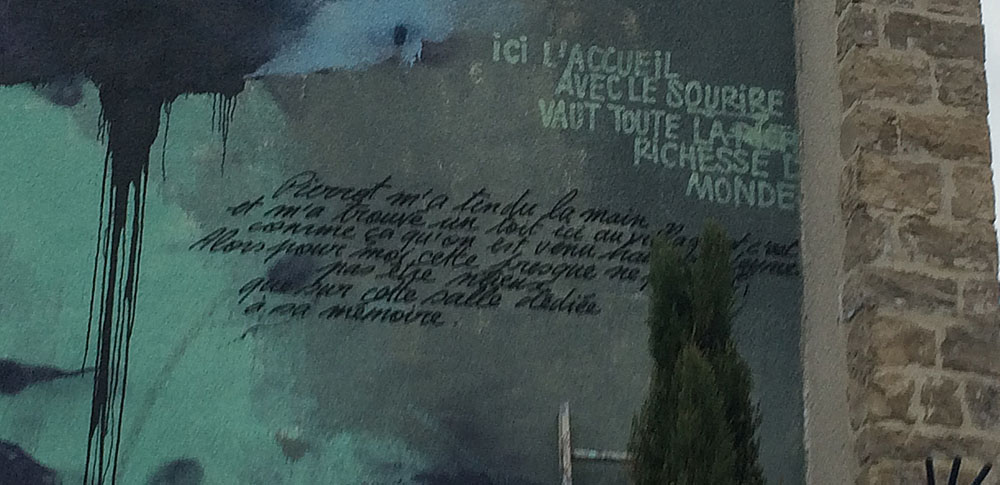 ICI L'ACCUEIL
AVEC LE SOURIRE
VAUT TOUTE LA
RICHESSE D
MONDE
Pierrot m'a tendu la main,
et m'a trouvé un toit ici au c'est
comme ça qu'on est venu
Alors pour moi, cette fresque ne
pas être mieux
que sur cette salle dédiée
à sa mémoire.